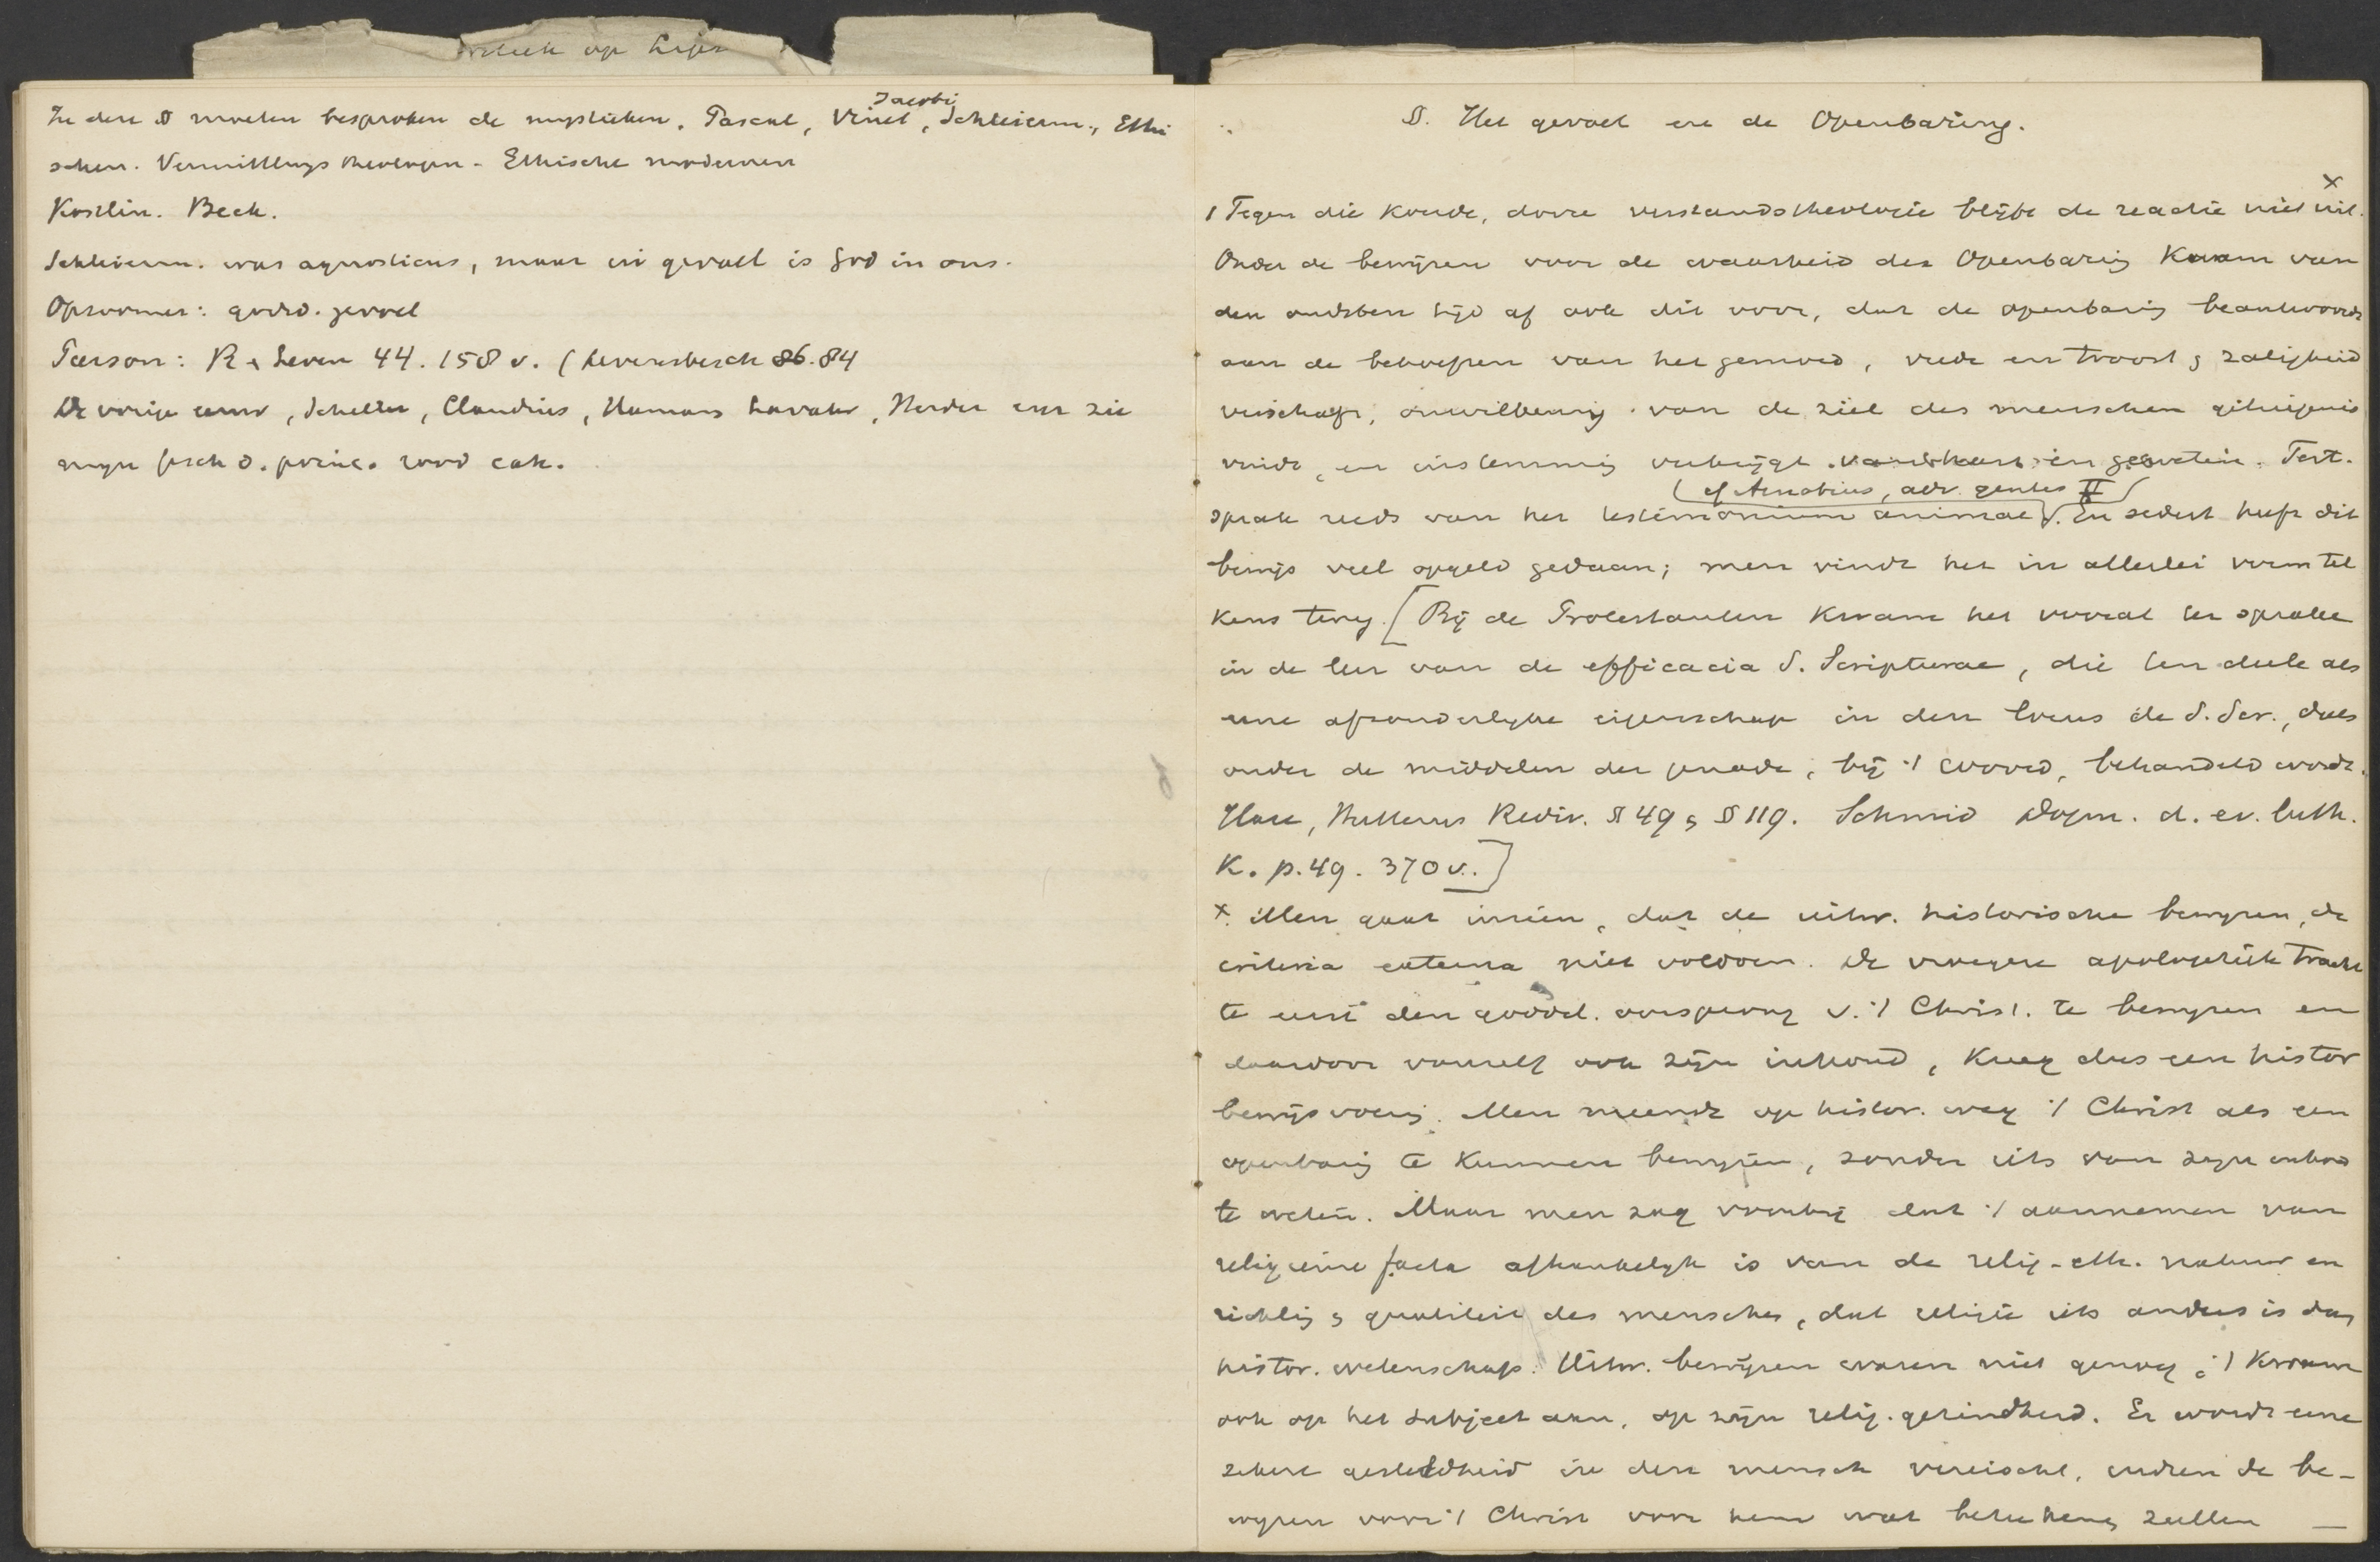 op
In deze § moeten besproken de mystieken. Pascal, Vinet, Jacobi, Schleierm., Ethi
schen. Vermittlungs theologen - Ethische modernen
Kostlin. Beck.
Schleierm. was agnosticus, maar in gevoel is God in ons.
Opzoomer: godsd. gevoel
Pierson: R & Leven 44. 158 v. (Levensbesch 86.84
De vorige eeuw, Claudius, Hamann Lavater, Herder enz zie
mijn gsch d. princ. rood cah.
§. Het gevoel en de Openbaring.
1 Tegen die koude, dorre verstandstheologie blijft de reactie niet uit. x
Onder de bewijzen voor de waarheid der Openbaring kwam van
den oudsten tijd af ook dit voor, dat de openbaring beantwoordt
aan de behoeften van het gemoed, vrede en troost & zaligheid
verschaft, onwillekeurig van de ziel des menschen getuigenis
vindt, en instemming verkrijgt van hart en geweten. Tert.
(cf Arnobius, adv. gentes II)
sprak reeds van het testimonium animae. En sedert heeft dit
bewijs veel opgeld gedaan; men vindt het in allerlei vorm tel
kens terug. [Bij de Protestanten kwam het vooral ter sprake
in de leer van de efficacia S. Scripturae, die ten deele als
eene afzonderlijke eigenschap in den locus de S. Scr., deels
onder de middelen der genade, bij 't woord, behandeld wordt.
Hase, Hutterus Rediv. § 49 & § 119. Schmid Dogm. d. ev. luth.
K. p. 49. 370 v.]
x. Men gaat inzien, dat de uitw. historische bewijzen, de
criteria externa niet voldoen. De vroegere apologetiek tracht
te eerst den goddel. oorsprong v. 't Christ. te bewijzen en
daardoor vanzelf ook zijn inhoud, kreeg dus een histor
bewijsvoering. Men meende op histor. weg 't Christ als een
openbaring te kunnen bewijzen, zonder iets van zijn inhoud
te weten. Maar men zag voorbij dat 't aannemen van
religieuse facta afhankelijk is van de relig-eth. natuur en
richting & qualiteit des menschen, dat religie iets anders is dan
histor. wetenschap. Uitw. bewijzen waren niet genoeg; 't kwam
ook op het subject aan, op zijn relig. gezindheid. Er wordt eene
zekere gesteldheid in den mensch vereischt, zullen de be-
wijzen voor 't Christ voor hem wat beteekenis zullen —